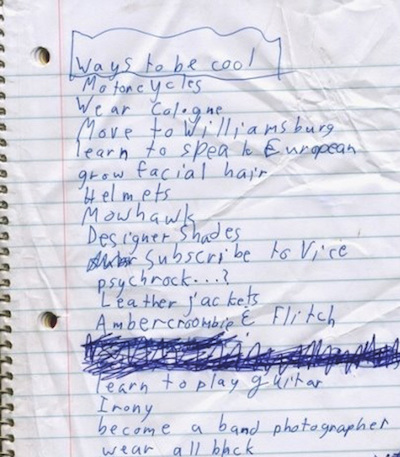 Ways to be cool
Motorcycles
Wear Cologne
Move to Williamsburg
learn to speak European
grow facial hair
Helmets
Mowhawk
Designer Shades
Subscribe to Vice
psychrock...?
Leather jackets
Ambercroombie & Flitch
learn to play guitar
Irony
become a band photographer
wear all black